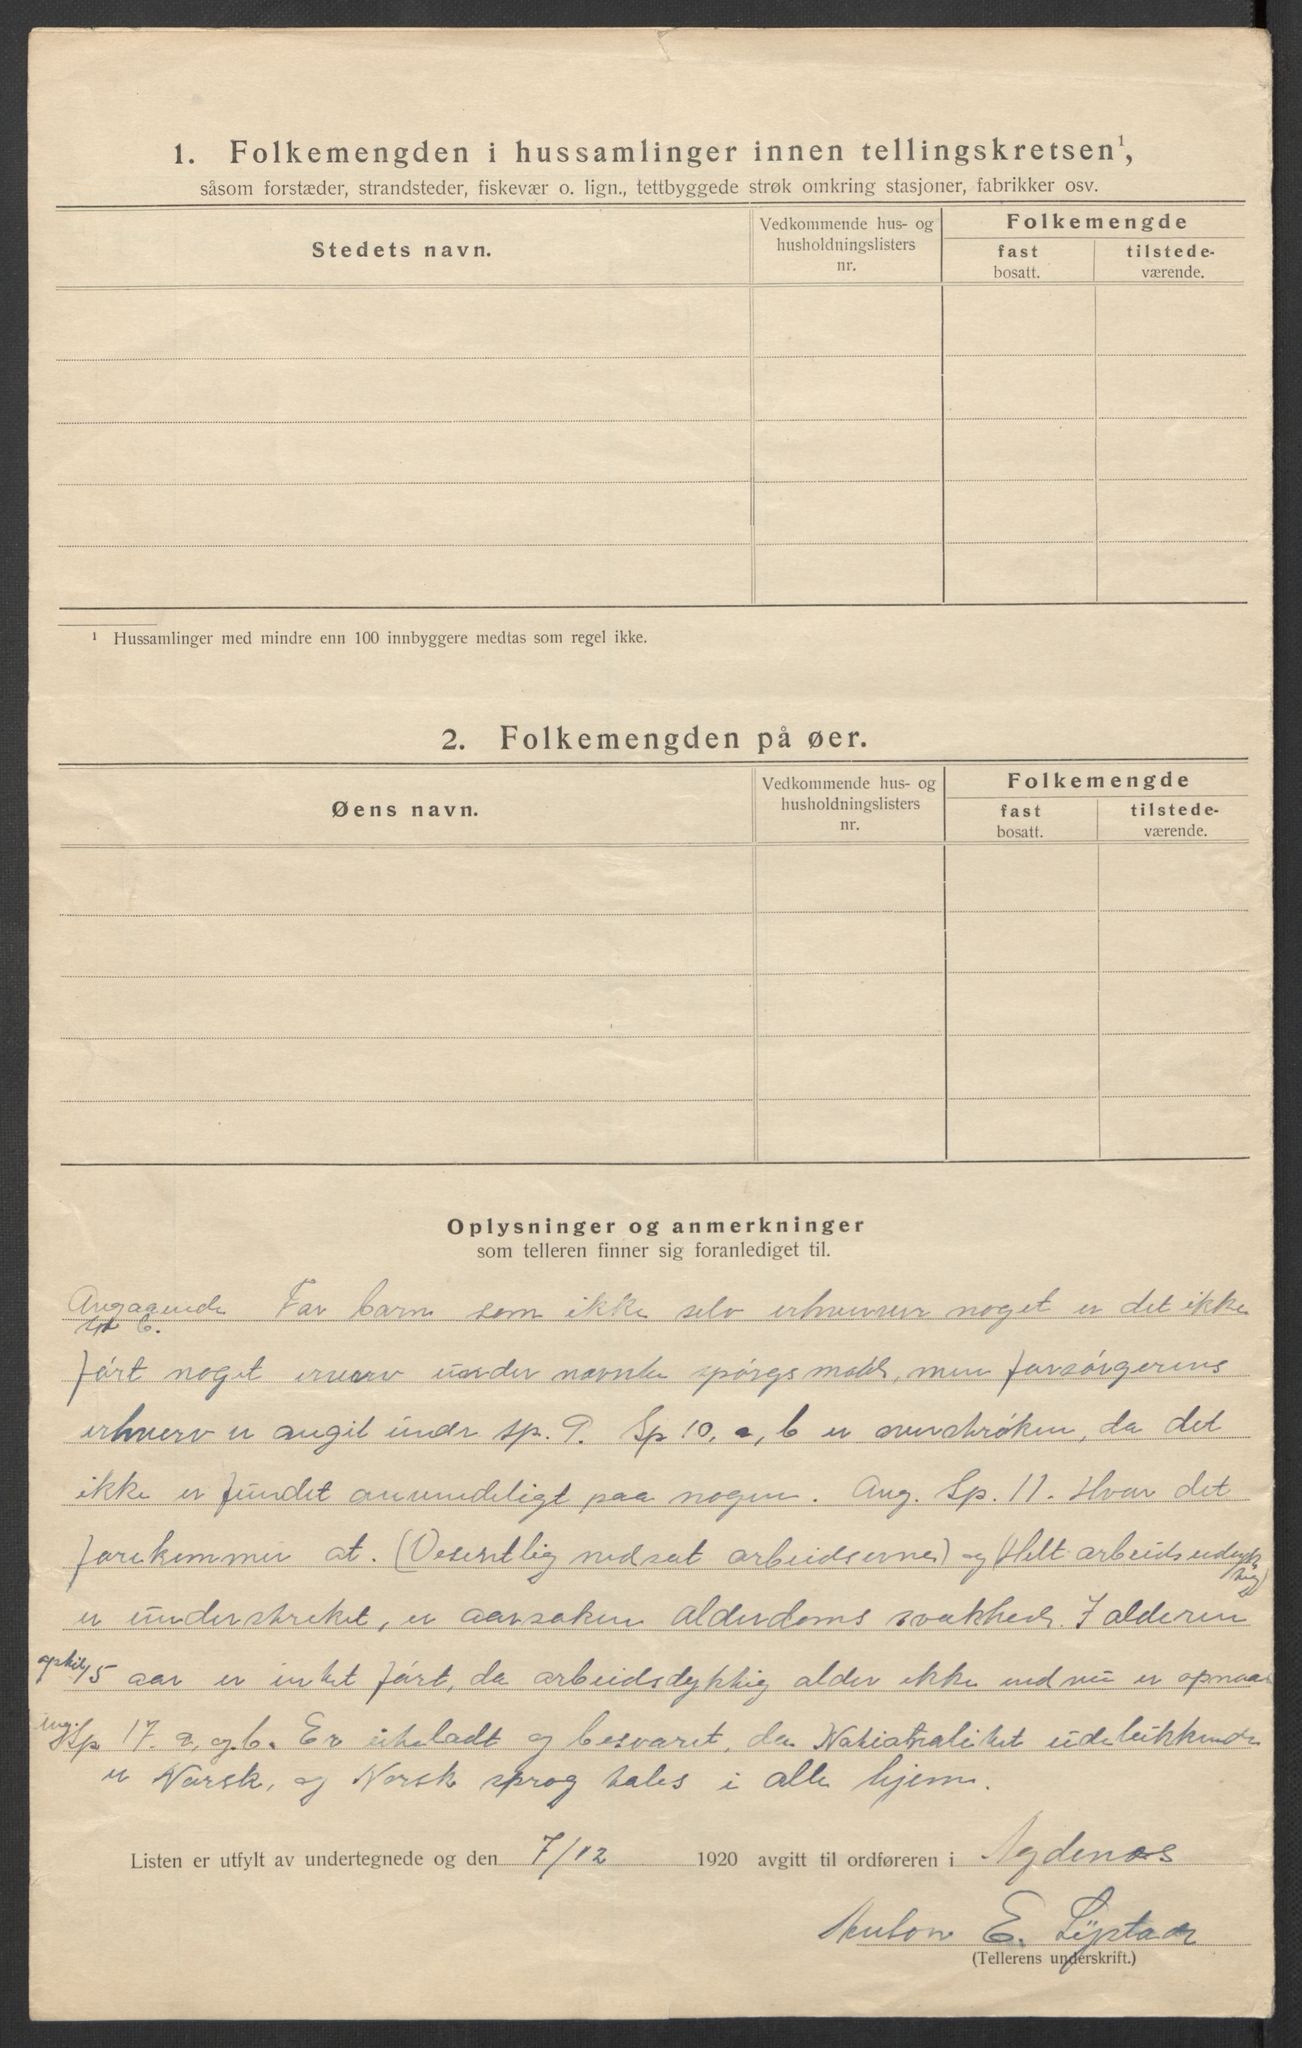 1. Folkemengden i hussamlinger innen tellingskretsen¹,
såsom forstæder, strandsteder, fiskevær o. lign., tettbyggede strøk omkring stasjoner, fabrikker osv.
Stedets navn.
Vedkommende hus- og
husholdningslisters
nr.
Folkemengde
fast
bosatt.
tilstede-
værende.
¹ Hussamlinger med mindre enn 100 innbyggere medtas som regel ikke.
2. Folkemengden på øer.
Øens navn.
Vedkommende hus- og
husholdningslisters
nr.
Folkemengde
fast
bosatt.
tilstede-
værende.
Oplysninger og anmerkninger
som telleren finner sig foranlediget til.
Angaaende For barn som ikke selv erhverver noget er det ikke
ført noget erverv under nævnte spørgsmaal, men forsørgerens
erhverv er angit under sp. 9. Sp 10, a, b er overstrøken, da det
ikke er fundet anvendeligt paa nogen. Ang. Sp. 11. Hvor det
forekommer at. (Vesentlig nedsat arbeidsevne) og (Helt arbeidsudyktig)
er understreket, er aarsaken alderdoms svakhed. I alderen
optil 15 aar er intet ført, da arbeidsdyktig alder ikke endnu er opnaad
ang. Sp 17. a, og b. Er uteladt og besvaret, da Nationalitet udelukkende
er Norsk, og Norsk sprog tales i alle hjem.
Listen er utfylt av undertegnede og den 7/12 1920 avgitt til ordføreren i Agdenes
Anton E. Lystad
(Tellerens underskrift.)